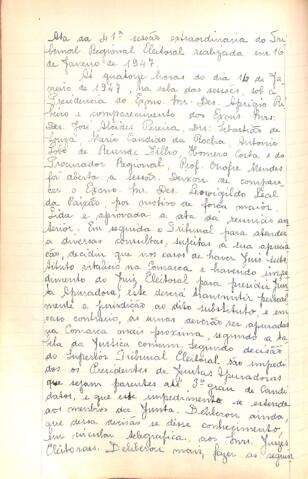 Ata da 41ª sessão extraordinaria do Tri-
bunal Regional Eleitoral realizada em 16
de Janeiro de 1947.
Ás quatorze horas do dia 16 de Ja-
neiro de 1947, na sala das sessões, sob a
Presidencia do Exmo. Snr. Des. Aprigio Ri-
beiro e comparecimento dos Exmos. Snrs.
Des. José Alcides Pereira, Drs. Sebastião de
Souza, Mario Candido da Rocha, Antonio
Lobo de Resende Filho, Homero Costa e do
Procurador Regional, Prof. Onofre Mendes
foi aberta a sessão. Deixou de compare-
cer o Exmo. Snr. Des. Leovigildo Leal
da Paixão, por motivo de força maior.
Lida e aprovada a ata da reunião an-
terior. Em seguida o Tribunal para atender
a diversas consultas, sujeitas á sua aprecia-
ção, decidiu que nos casos de haver Juiz subs-
tituto vitalicio na Comarca e havendo impe-
dimento do Juiz Eleitoral para presidir Jun-
ta Apuradora, este deverá transmitir pessoal-
mente a jurisdição ao dito substituto, e em
caso contrario, as urnas deverão ser apuradas
na Comarca mais proxima, segundo a ta-
bela da Justiça comum. Segundo decisão
do Superior Tribunal Eleitoral são impedi-
dos os Presidentes de Juntas Apuradoras
que sejam parentes até 3º grau de Candi-
datos, e que este impedimento se estende
aos membros da Junta. Deliberou ainda,
que dessa decisão se désse conhecimento,
em circular telegrafica, aos Snrs. Juizes
Eleitoraes. Deliberou mais, fazer as seguin-